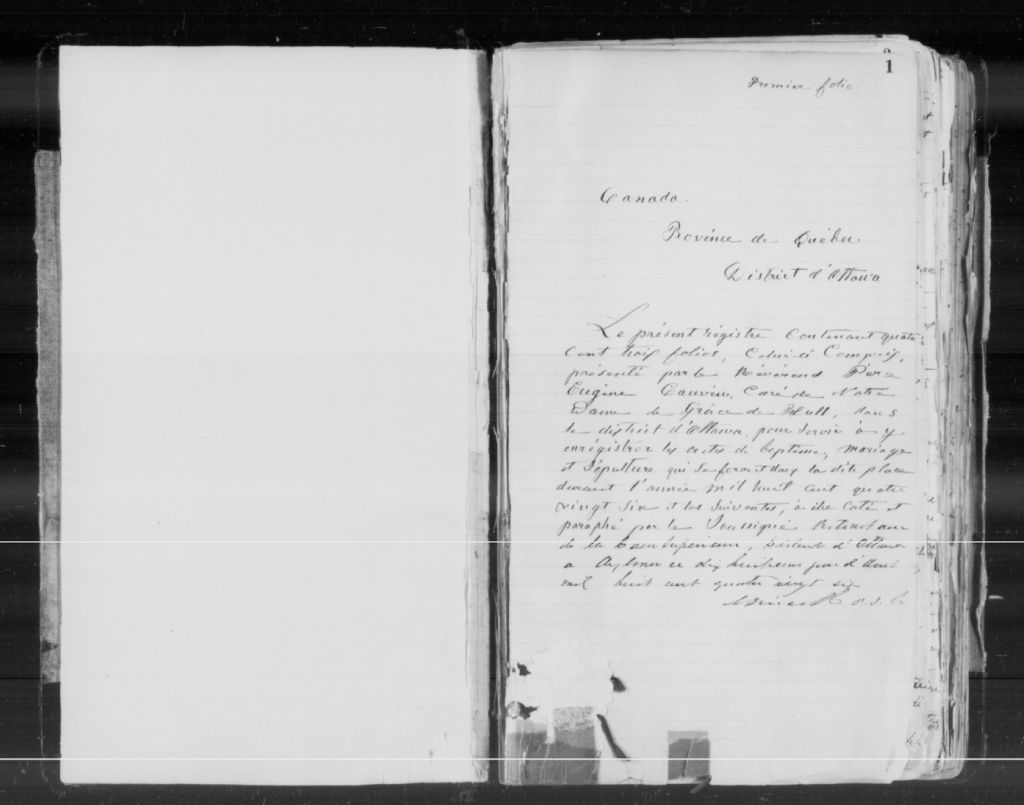 1
Premier folio
Canada.
Province de Québec.
District d'Ottawa
Le présent régistre contenant quatre
cent trois folios, celui-ci compris,
présenté par le Révérend Père
Eugène Cauvin, Curé de Notre
Dame de Grâce de Hull, dans
le district d'Ottawa, pour servir à y
enrégistrer les actes de baptême, mariage
et sépulture qui se feront dans la dite place
durant l'année mil huit cent quatre
vingt six et les suivantes, a été coté et
paraphé par le soussigné Protonotaire
de la Cour Supérieure, District d'Ottawa
a Aylmer ce dix huitième jour d'Août
mil huit cent quatre vingt six